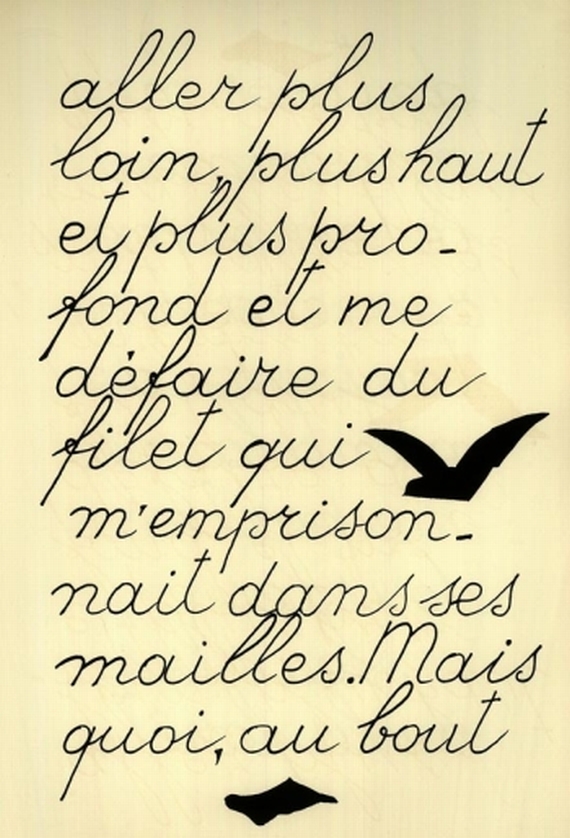 aller plus
loin, plus haut
et plus pro-
fond et me
défaire du
filet qui
m'emprison-
nait dans ses
mailles. Mais
quoi, au bout